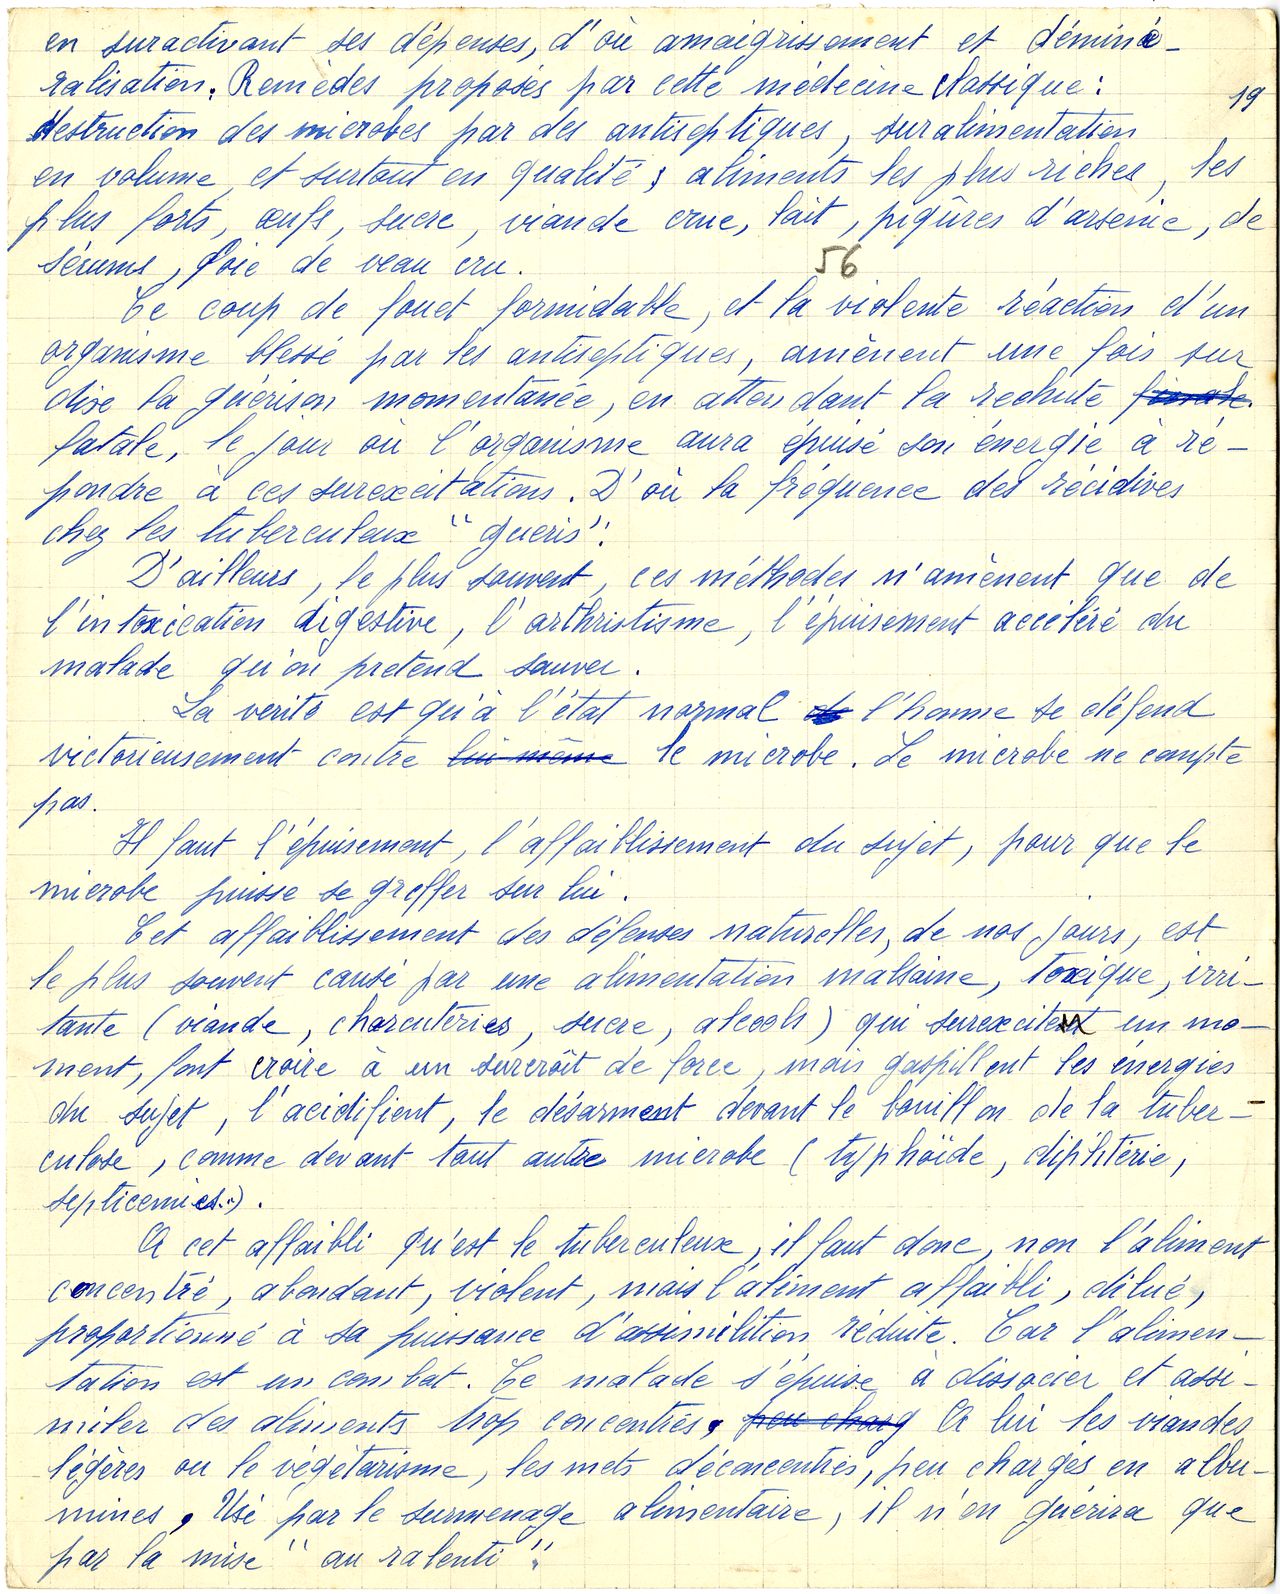 en suractivant ses dépenses, d'où amaigrissement et déminé-
ralisation. Remèdes proposés par cette médecine classique :
19
destruction des microbes par des antiseptiques, suralimentation
en volume, et surtout en qualité ; aliments les plus riches, les
plus forts, œufs, sucre, viande crue, lait, piqûres d'arsenic, de
sérums, foie de veau cru.
56
Ce coup de fouet formidable, et la violente réaction d'un
organisme blessé par les antiseptiques, amènent une fois sur
dix la guérison momentanée, en attendant la rechute finale
fatale, le jour où l'organisme aura épuisé son énergie à ré-
pondre à ces surexcitations. D'où la fréquence des récidives
chez les tuberculeux "guéris".
D'ailleurs, le plus souvent, ces méthodes n'amènent que de
l'intoxication digestive, l'arthristisme, l'épuisement accéléré du
malade qu'on prétend sauver.
La vérité est qu'à l'état normal de l'homme se défend
victorieusement contre lui-même le microbe. Le microbe ne compte
pas.
Il faut l'épuisement, l'affaiblissement du sujet, pour que le
microbe puisse se greffer sur lui.
Cet affaiblissement des défenses naturelles, de nos jours, est
le plus souvent causé par une alimentation malsaine, toxique, irri-
tante (viande, charcuteries, sucre, alcools) qui surexcitent un mo-
ment, font croire à un surcroît de force, mais gaspillent les énergies
du sujet, l'acidifient, le désarment devant le bouillon de la tuber-
culose, comme devant tout autre microbe (typhoïde, diphtérie,
septicemies..).
A cet affaibli qu'est le tuberculeux, il faut donc, non l'aliment
concentré, abondant, violent, mais l'aliment affaibli, dilué,
proportionné à sa puissance d'assimilition réduite. Car l'alimen-
tation est un combat. Le malade s'épuise à dissocier et assi-
miler des aliments trop concentrés, peu charg A lui les viandes
légères ou le végétarisme, les mets déconcentrés, peu chargés en albu-
mines, Usé par le surmenage alimentaire, il n'en guérira que
par la mise "au ralenti".